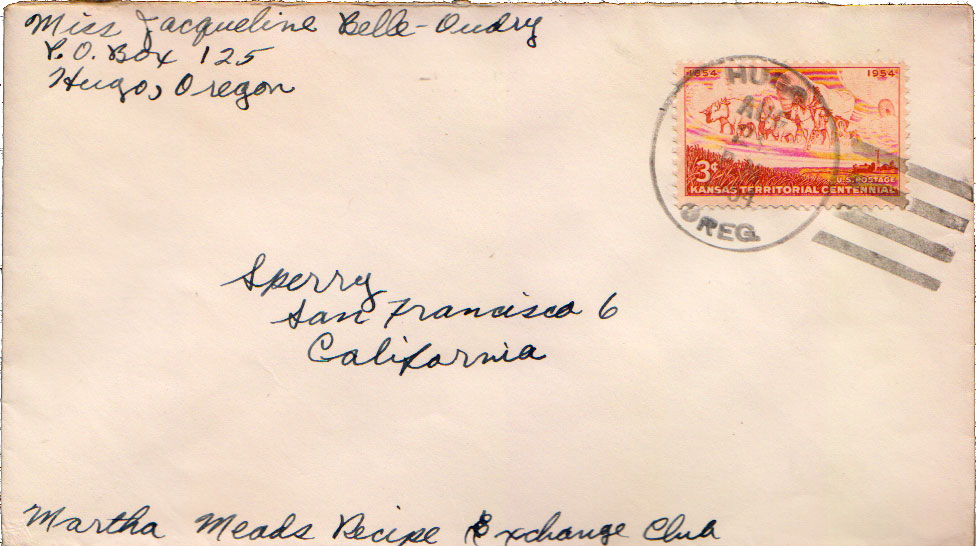 Miss Jacqueline Belle-Oudry
P.O. Box 125
Hugo, Oregon
HUGO
AUG
OREG.
1854 1954
3¢
U.S. POSTAGE
KANSAS TERRITORIAL CENTENNIAL
Sperry
San Francisco 6
California
Martha Meads Recipe Exchange Club